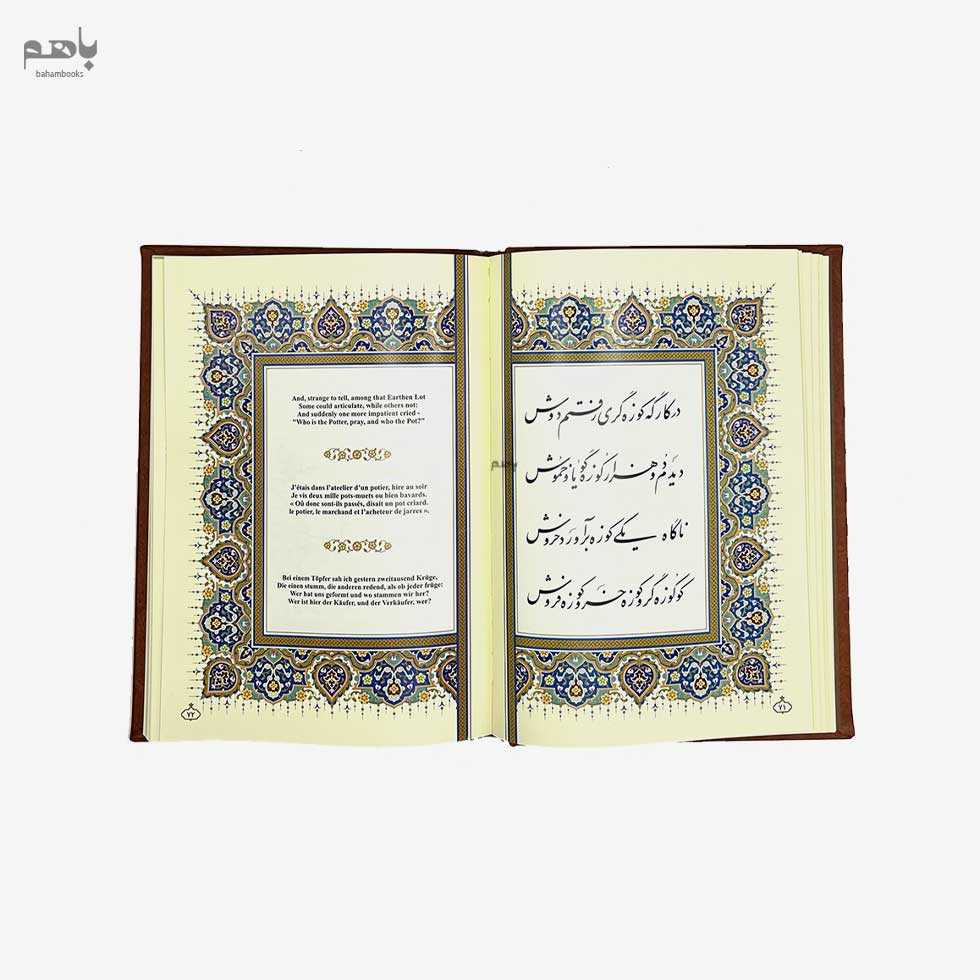 باهم
bahambooks
در کارگه کوزه گری رفتم دوش
دیدم دو هزار کوزه گویا و خموش
ناگاه یکی کوزه برآورد خروش
کو کوزه گر و کوزه خر و کوزه فروش
۷۱
And, strange to tell, among that Earthen Lot
Some could articulate, while others not:
And suddenly one more impatient cried -
"Who is the Potter, pray, and who the Pot?"
J'étais dans l'ateelier d'un potier, hire au soir
Je vis deux mille pots-muets ou bien bavards.
« Où donc sont-ils passés, disait un pot criard.
le potier, le marchand et l'acheteur de jarres ».
Bei einem Töpfer sah ich gestern zweitausend Krüge,
Die einen stumm, die anderen redend, als ob jeder früge:
Wer hat uns geformt und wo stammen wir her?
Wer ist hier der Käufer, und der Verkäufer, wer?
۷۲
باهم